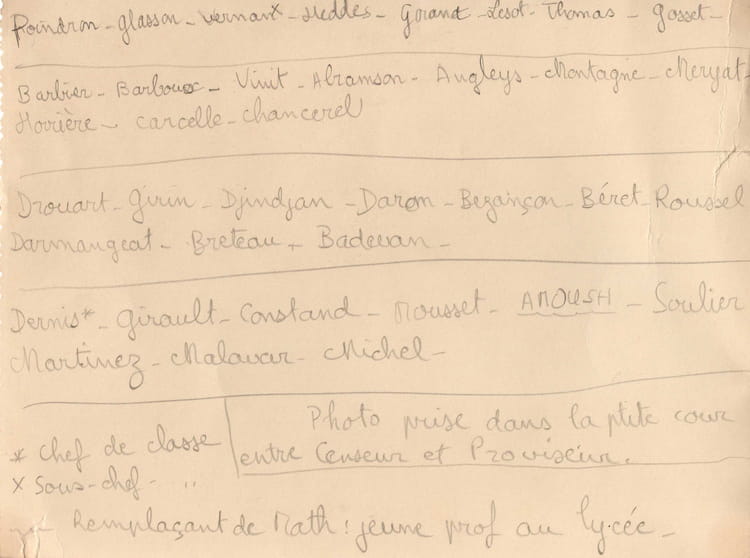 Poindron - glasson - Vernant x - Heddes - Gorand - Lesot - Thomas - gosset -
Barbier - Barboux - Vinit - Abramson - Angleys - Montagne - Meryat -
Horrière - Carcelle - Chancerel
Drouart - girin - Djindjan - Daron - Bezançon - Béret - Roussel
Darmangeat - Breteau - Badevan -
Dernis* - Girault - Constand - Rousset - ANOUSH - Soulier
Martinez - Malavar - Michel -
* Chef de classe
x Sous-chef - ..
Photo prise dans la ptite cour
entre Censeur et Proviseur.
Remplaçant de Math : jeune prof au lycée -